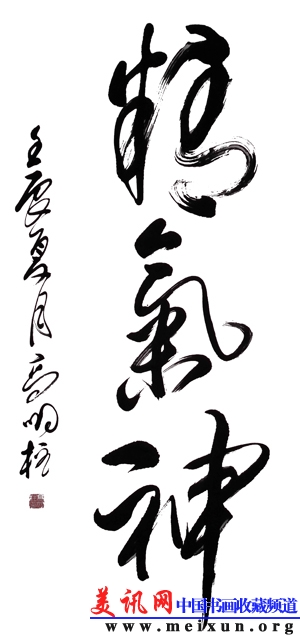 精氣神
壬辰夏月高明柱
美讯网 中国书画收藏频道
www.meixun.org